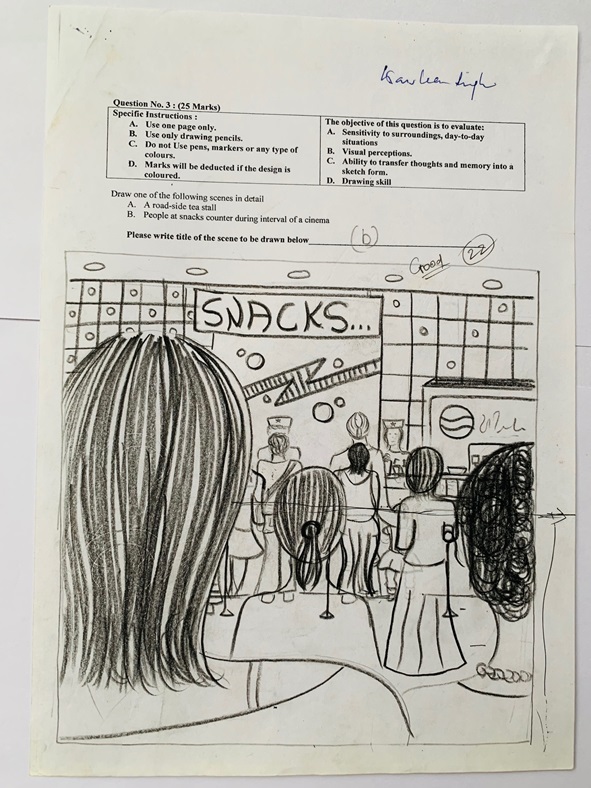 Question No. 3 : (25 Marks)
Specific Instructions :
A. Use one page only.
B. Use only drawing pencils.
C. Do not Use pens, markers or any type of
colours.
D. Marks will be deducted if the design is
coloured.
The objective of this question is to evaluate:
A. Sensitivity to surroundings, day-to-day
situations
B. Visual perceptions.
C. Ability to transfer thoughts and memory into a
sketch form.
D. Drawing skill
Draw one of the following scenes in detail
A. A road-side tea stall
B. People at snacks counter during interval of a cinema
Please write title of the scene to be drawn below (b)
Good 22
SNACKS...